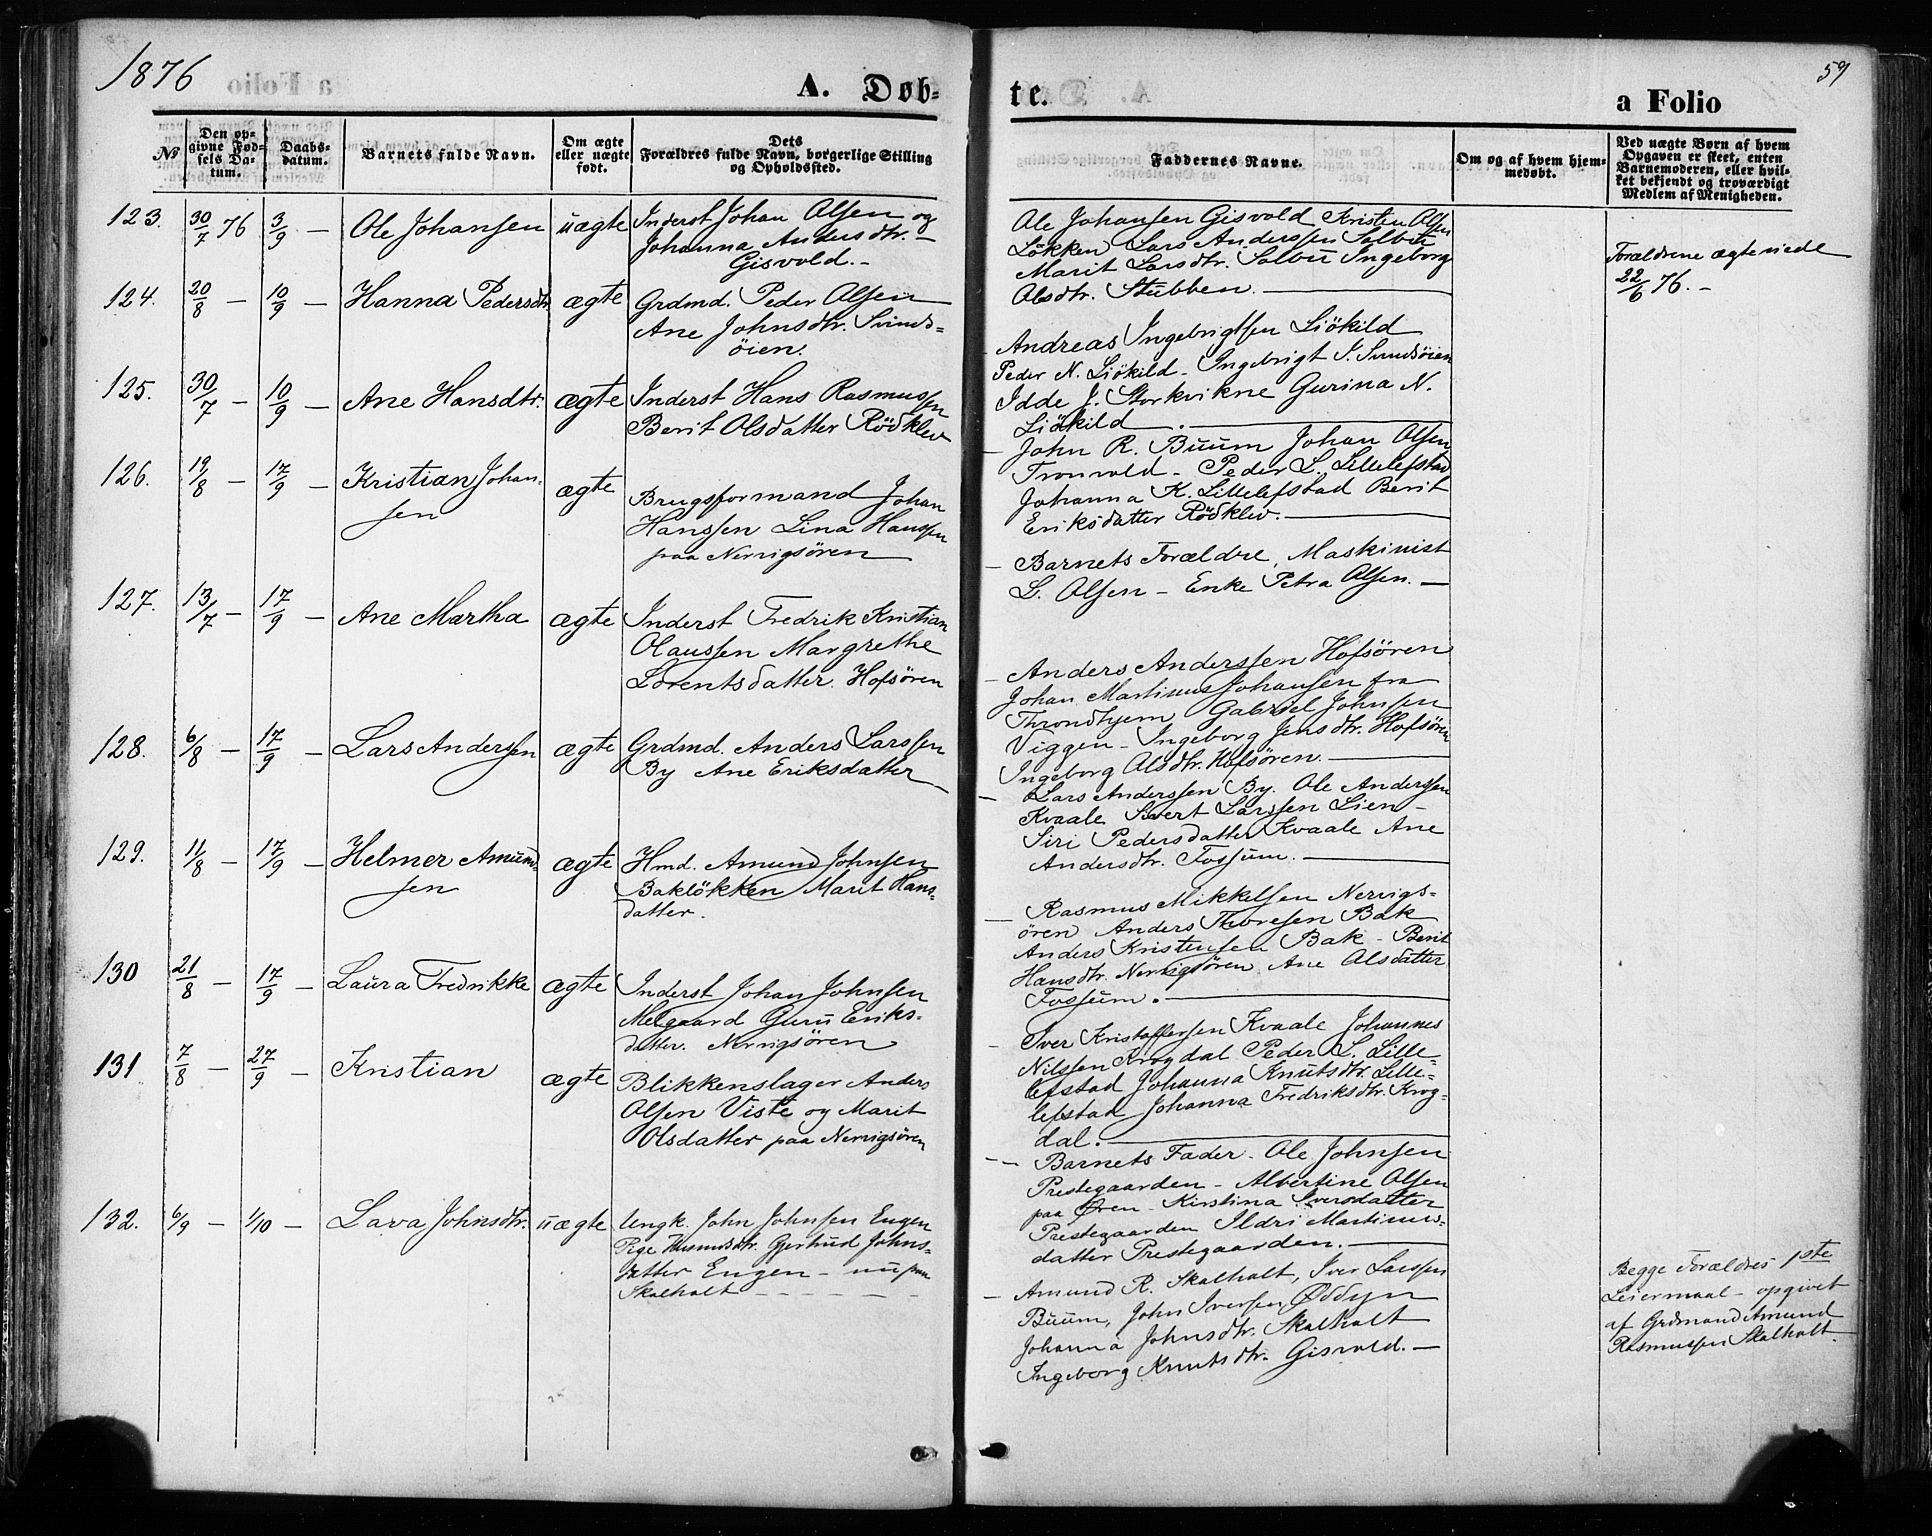 1876
A. Døb-
№
Den op-
givne Fød-
sels Da-
tum.
Daabs-
datum.
Barnets fulde Navn.
Om ægte
eller uægte
født.
Dets
Forældres fulde Navn, borgerlige Stilling
og Opholdssted.
123. 30/7 76 3/9 – Ole Johansen uægte Inderst Johan Olsen og
Johanna Andersdtr. –
Gisvold. –
124. 20/8 – 10/9 – Hanna Pedersdtr. ægte Grdmd. Peder Olsen
Ane Johnsdtr. Svinds=
öien.
125. 30/7 – 10/9 – Ane Hansdtr. ægte Inderst Hans Rasmussen
Berit Olsdatter Rödklev
126. 19/8 – 17/9 – Kristian Johan-
sen ægte Brugsformand Johan
Hanssen Lina Hanssen
paa Nervigsören
127. 13/7 – 17/9 – Ane Martha ægte Inderst Fredrik Kristian
Olaussen Margrethe
Lorentsdatter. Hofsören
128. 6/8 – 17/9 – Lars Anderssen ægte Grdmd. Anders Larssen
By Ane Eriksdatter
129. 11/8 – 17/9 – Helmer Amund-
sen ægte Hmd. Amund Johnsen
Baklökken Marit Hans=
datter.
130 21/8 – 17/9 – Laura Fredrikke ægte Inderst Johan Johnsen
Melgaard Guru Eriks-
datter. Nervigsören
131 7/8 – 27/9 – Kristian ægte Blikkenslager Anders
Olsen Viste og Marit
Olsdatter paa Nervigsören
132. 6/9 – 1/10 – Lava Johnsdtr. uægte Ungk. John Johnsen Engen
Pige Gjertrud Johns=
datter Engen – nu paa
Skalholt – – – – –
59
te.
a Folio
Faddernes Navne.
Om og af hvem hjem-
medøbt.
Ved uægte Børn af hvem
Opgaven er skeet, enten
Barnemoderen, eller hvil-
ket bekjendt og troværdigt
Medlem af Menigheden.
Ole Johansen Gisvold Kristen Olsen
Lökken Lars Anderssen Solbu
Marit Larsdtr. Solbu Ingeborg
Olsdtr. Stubben. –
Forældrene ægteviede
22/6 76. –
Andreas Ingebrigtsen Liökild
Peder N. Liökild – Ingebrigt J. Svinsöien
Idde J. Storkvikne Gurina N.
Liökild.
– John R. Buum Johan Olsen
Tronvold – Peder L. Lillelefstad
Johanna K. Lillelefstad Berit
Eriksdatter Rödklev. –
– Barnets Forældre, Maskinist
L. Olsen – Enke Petra Olsen. –
– Anders Anderssen Hofsören
Johan Martinus Johansen fra
Throndhjem Gabriel Johnsen
Viggen – Ingeborg Jensdtr. Hofsören
Ingeborg Olsdtr. Hofsören. –
– Lars Anderssen By. Ole Anderssen
Kvaale Sivert Larssen Lien –
Siri Pedersdatter Kvaale Ane
Andersdtr. Fossum. –
– Rasmus Mikkelsen Nervigs-
ören Anders Thoresen Bak
Anders Kristensen Bak – Berit
Hansdtr. Nervigsören Ane Olsdatter
Fossum. –
– Iver Kristoffersen Kvaale Johannes
Nilssen Krogdal Peder L. Lille-
lefstad Johanna Knutsdtr. Lille-
lefstad Johanna Fredriksdtr. Krog-
dal. –
– Barnets Fader – Ole Johnsen
Prestegaarden – Albertine Olsen
paa Øren – Kirstina Iversdatter
Prestegaarden Ildri Martinus-
datter Prestegaarden. –
– Amund R. Skalholt, Iver Larssen
Buum, John Iversen Øddyn
Johanna Johnsdtr. Skalholt
Ingeborg Knutsdtr. Gisvold. –
Begge Forældres 1ste
Leiermaal – opgivet
af Grdmand Amund
Rasmussen Skalholt.